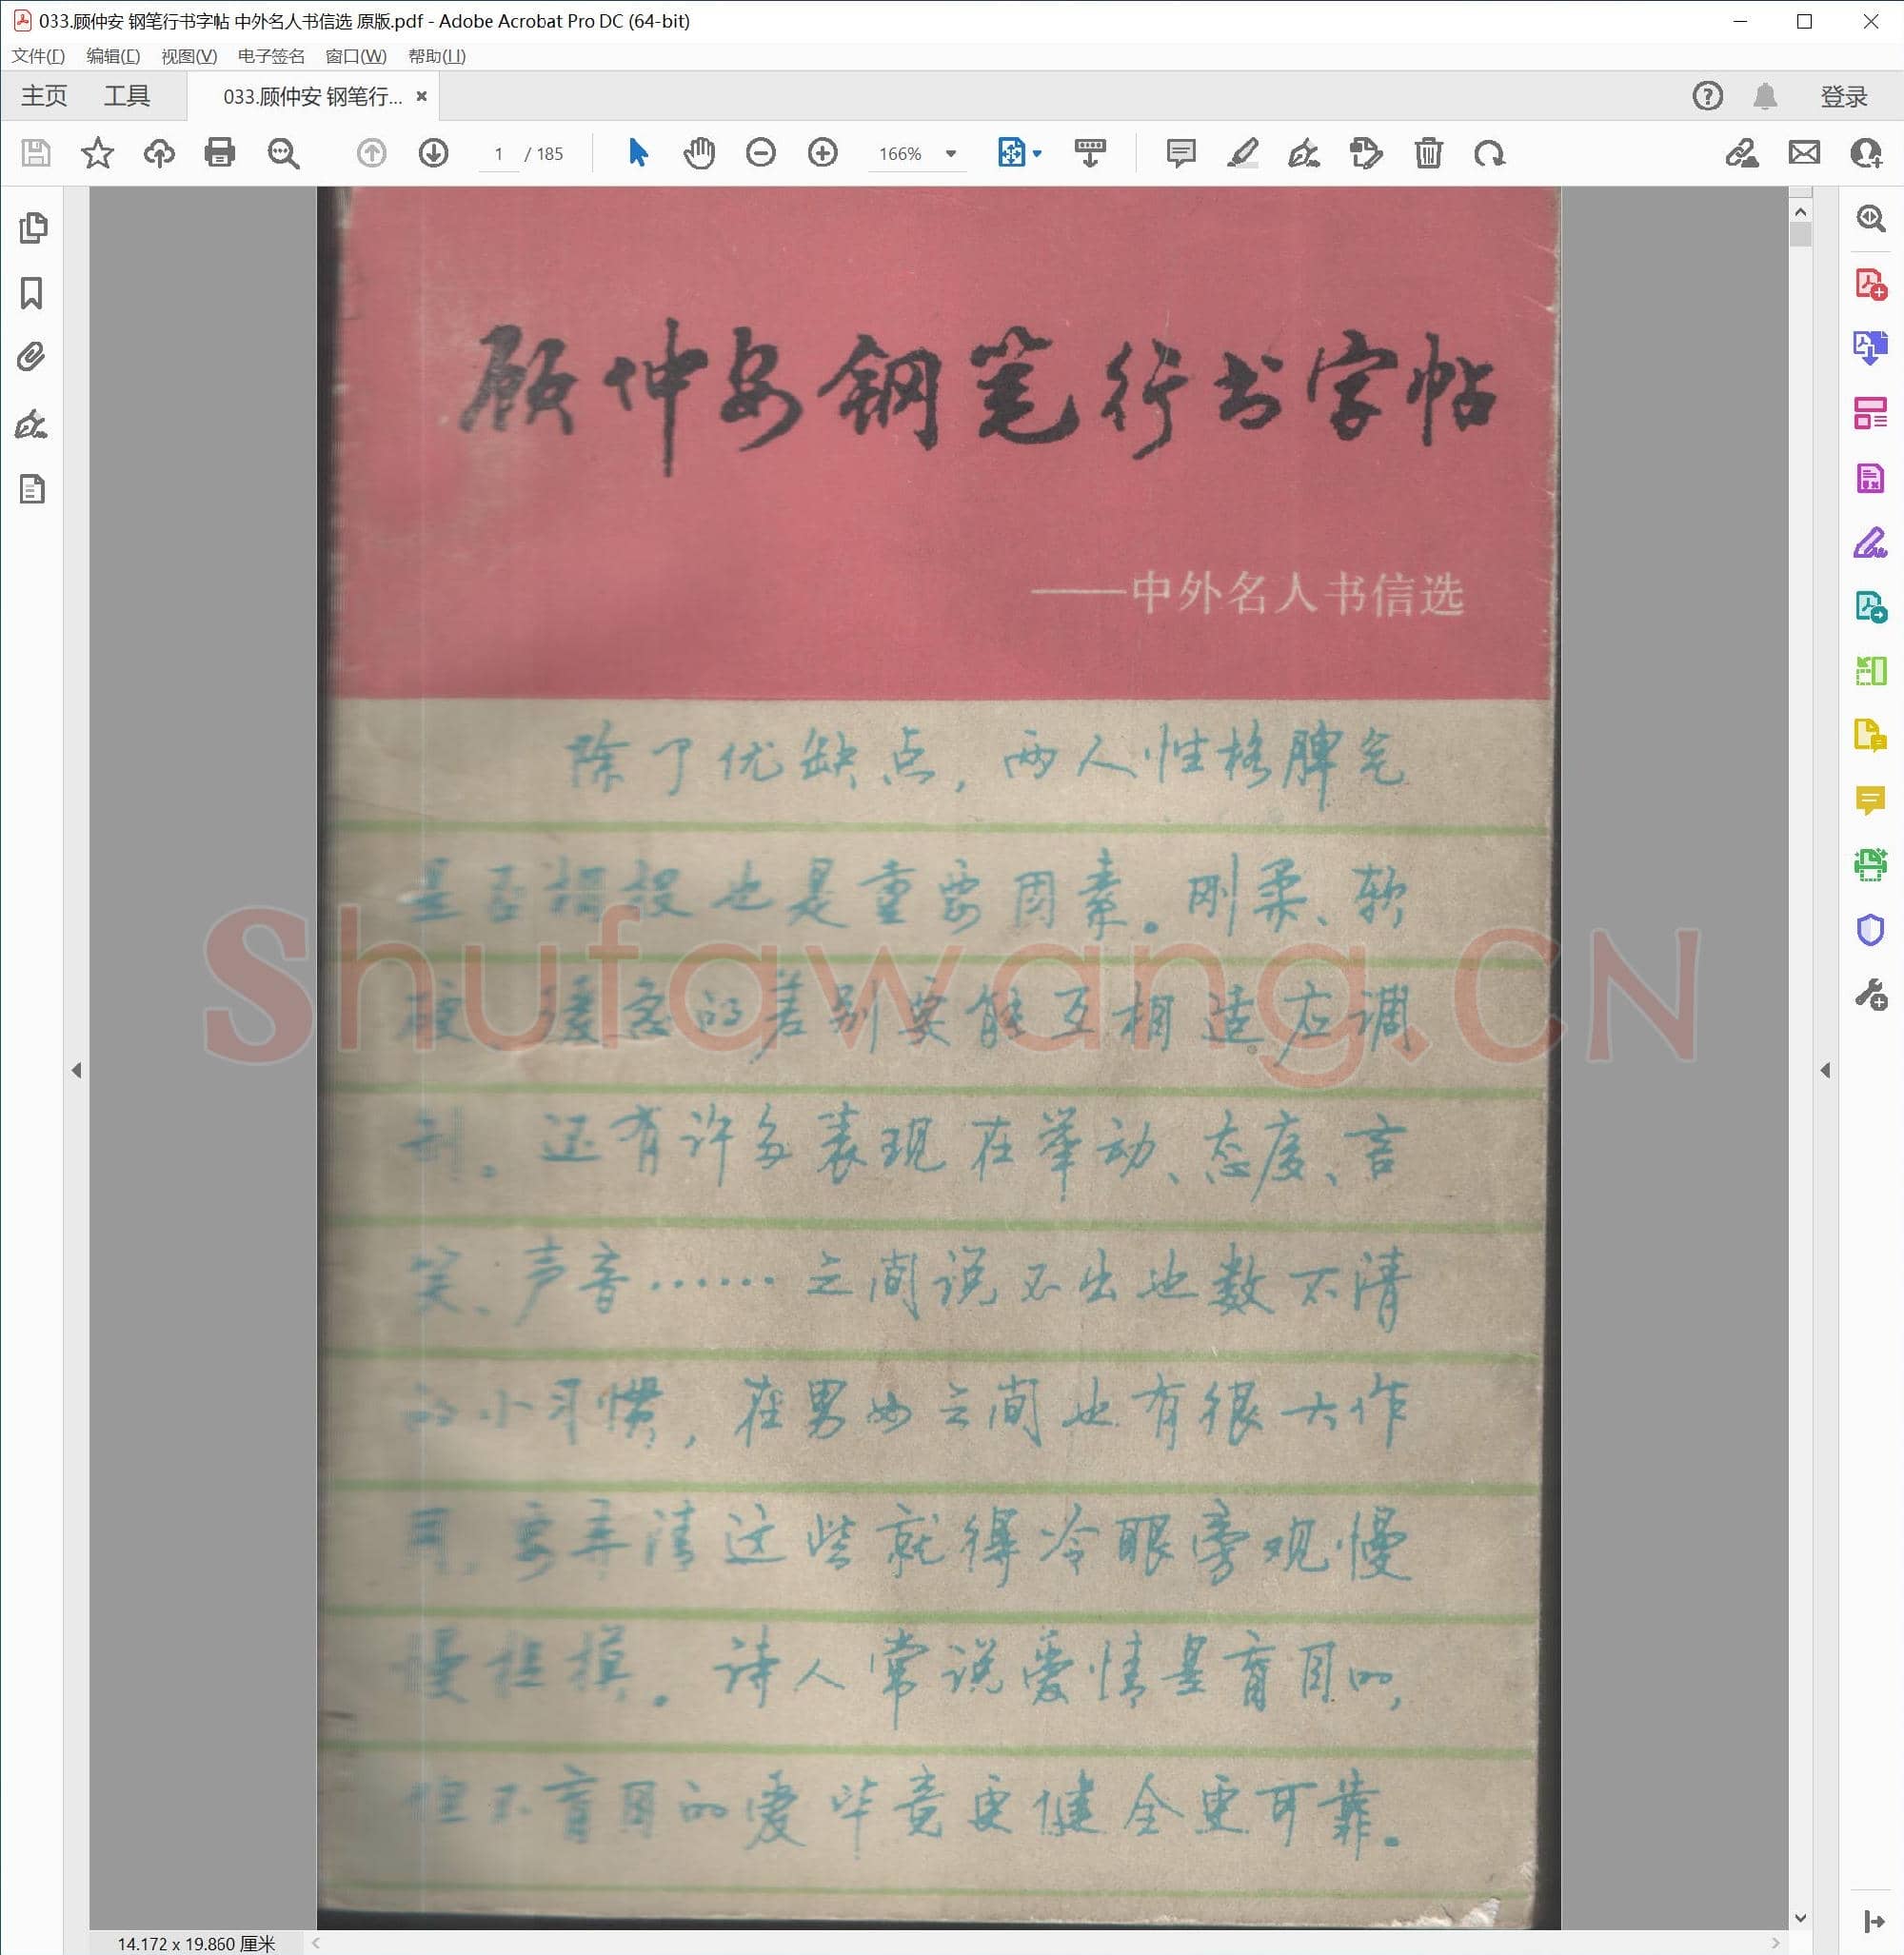 033.顾仲安 钢笔行书字帖 中外名人书信选 原版.pdf - Adobe Acrobat Pro DC (64-bit)
文件(F) 编辑(E) 视图(V) 电子签名 窗口(W) 帮助(H)
主页 工具 033.顾仲安 钢笔行... × 登录
1 / 185 166%
顾仲安钢笔行书字帖
——中外名人书信选
除了优缺点，两人性格脾气
是否相投也是重要因素。刚柔、软
硬、缓急的差别要能互相适应调
剂。还有许多表现在举动、态度、言
笑、声音……之间说不出也数不清
的小习惯，在男女之间也有很大作
用，要弄清这些就得冷眼旁观慢
慢捉摸。诗人常说爱情是盲目的，
但不盲目的爱毕竟更健全更可靠。
Shufawang.CN
14.172 x 19.860 厘米